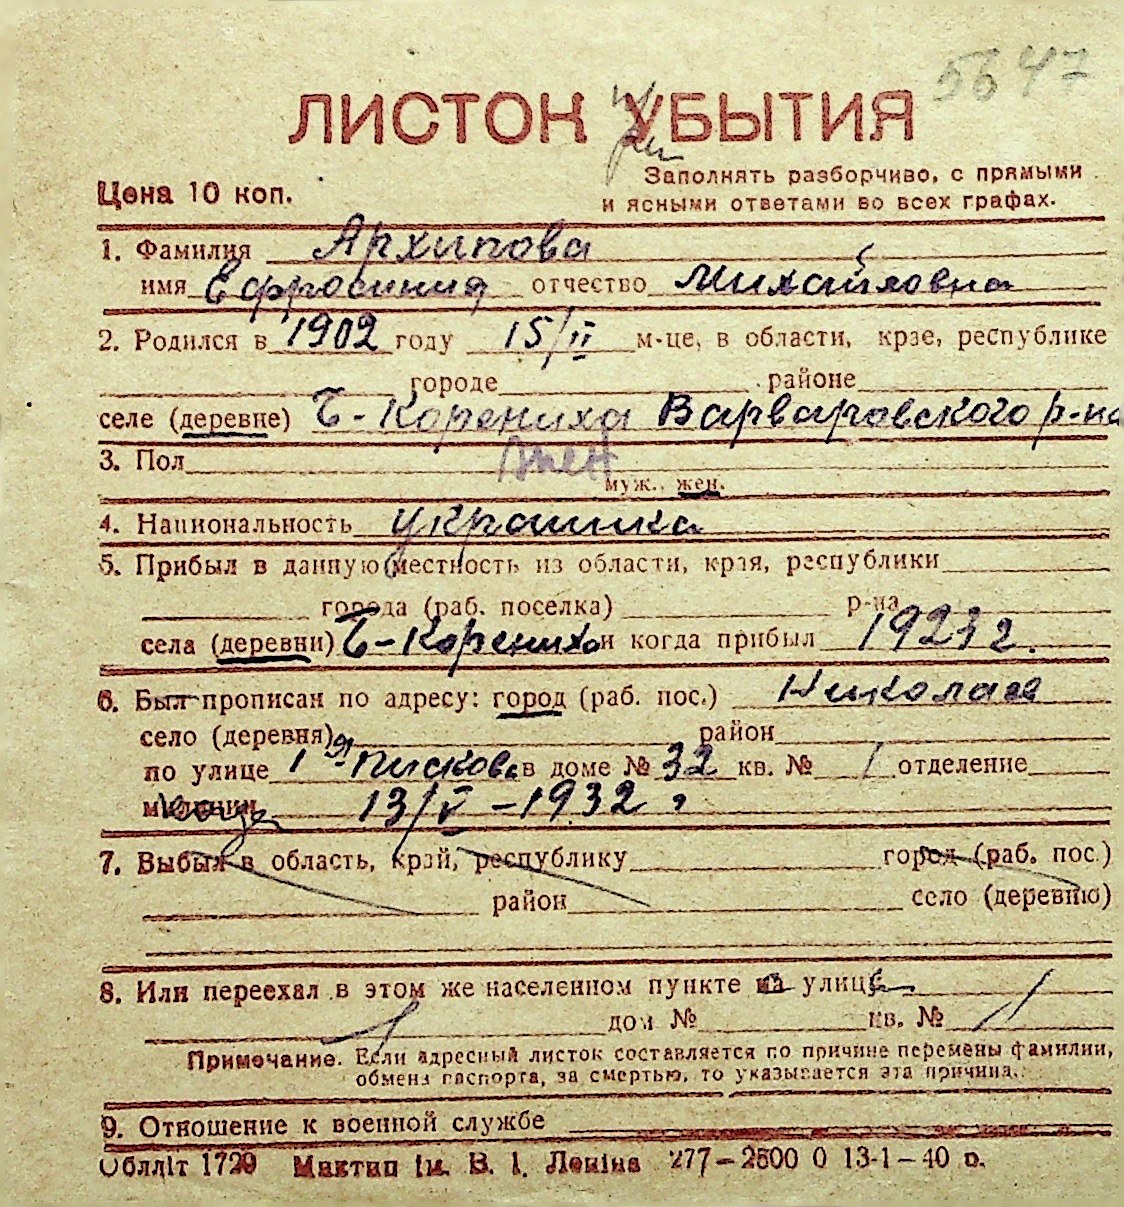 5647
ЛИСТОК УБЫТИЯ
при
Цена 10 коп.
Заполнять разборчиво, с прямыми
и ясными ответами во всех графах.
1. Фамилия Архипова
имя Ефросиния отчество Михайловна
2. Родился в 1902 году 15/II м-це, в области, крае, республике
городе районе
селе (деревне) Б-Корениха Варваровского р-на
3. Пол жен
муж., жен.
4. Национальность украинка
5. Прибыл в данную местность из области, края, республики
города (раб. поселка) р-на
села (деревни) Б-Корениха и когда прибыл 1923 г.
6. Был прописан по адресу: город (раб. пос.) Николаев
село (деревня) район
по улице 1я Пискова в доме № 32 кв. № 1 отделение
милиции когда 13/V-1932 г
7. Выбыл в область, край, республику город (раб. пос.)
район село (деревню)
8. Или переехал в этом же населенном пункте на улице
дом № кв. №
Примечание. Если адресный листок составляется по причине перемены фамилии,
обмена паспорта, за смертью, то указывается эта причина.
9. Отношение к военной службе
Обллiт 1729 Миктип iм. В. I. Ленiна 277—2500 0 13-1—40 р.